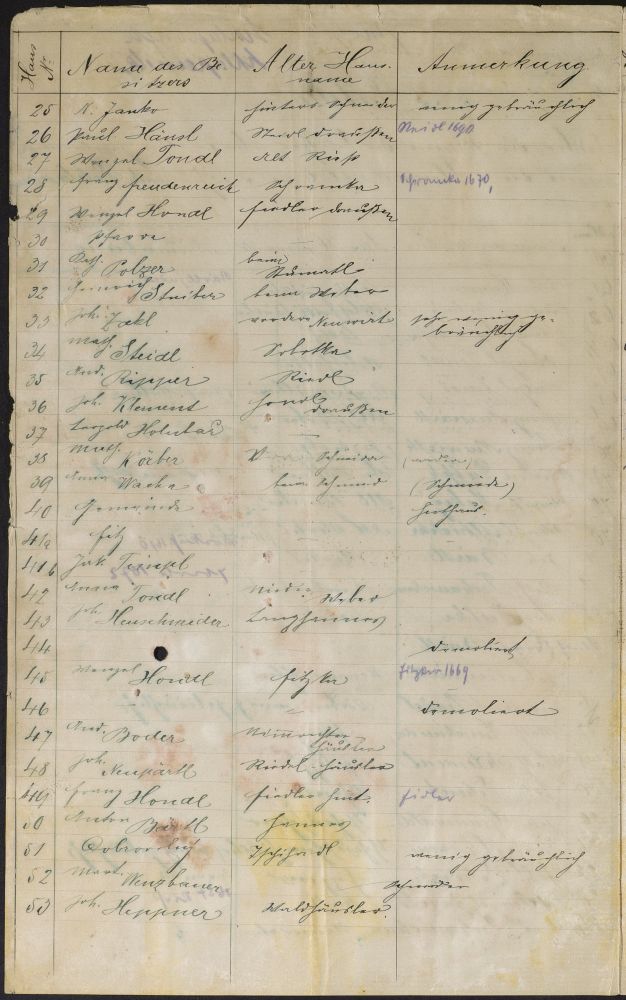 Haus Nr. Name des Besitzers Alter Hausname Anmerkung
25 A. Janko hinterer Schneider wenig gebräuchlich
26 Paul Hänsl Steidl draußen Steidl 1690
27 Wenzel Tondl alt
28 Franz Freudenreich Schramka Schramka 1670,
29 Wenzel Hondl Fiedler draußen
30 Pfarre —
31 Kath. Polzer beim
32 Heinrich Steiber beim Weber
33 Joh. Jakl vorderer Neuwirt sehr wenig gebräuchlich
34 Math. Steidl Sobotka
35 And. Ripper Riedl
36 Joh. Klement Hondl draußen
37 Leopold Holubař —
38 Math. Körber Schneider
39 Anna Wacha beim Schmied (Schmiede)
40 Gemeinde Huthaus.
41a Fitz
41b Jak. Teimpl
42 Anna Tondl Nieder Weber
43 Joh. Heuschneider Langhannes
44 demoliert
45 Wenzel Hondl Fitzka 1669
46 — demoliert
47 And. Boder Häusler
48 Joh. Neupärtl Riedel-Häusler
49 Franz Hondl Fiedler hint. Fidler
50 Anton Bartl Hannes
51 wenig gebräuchlich
52 Mart. Wenzbauer Schneider
53 Joh. Heppner Waldhäusler